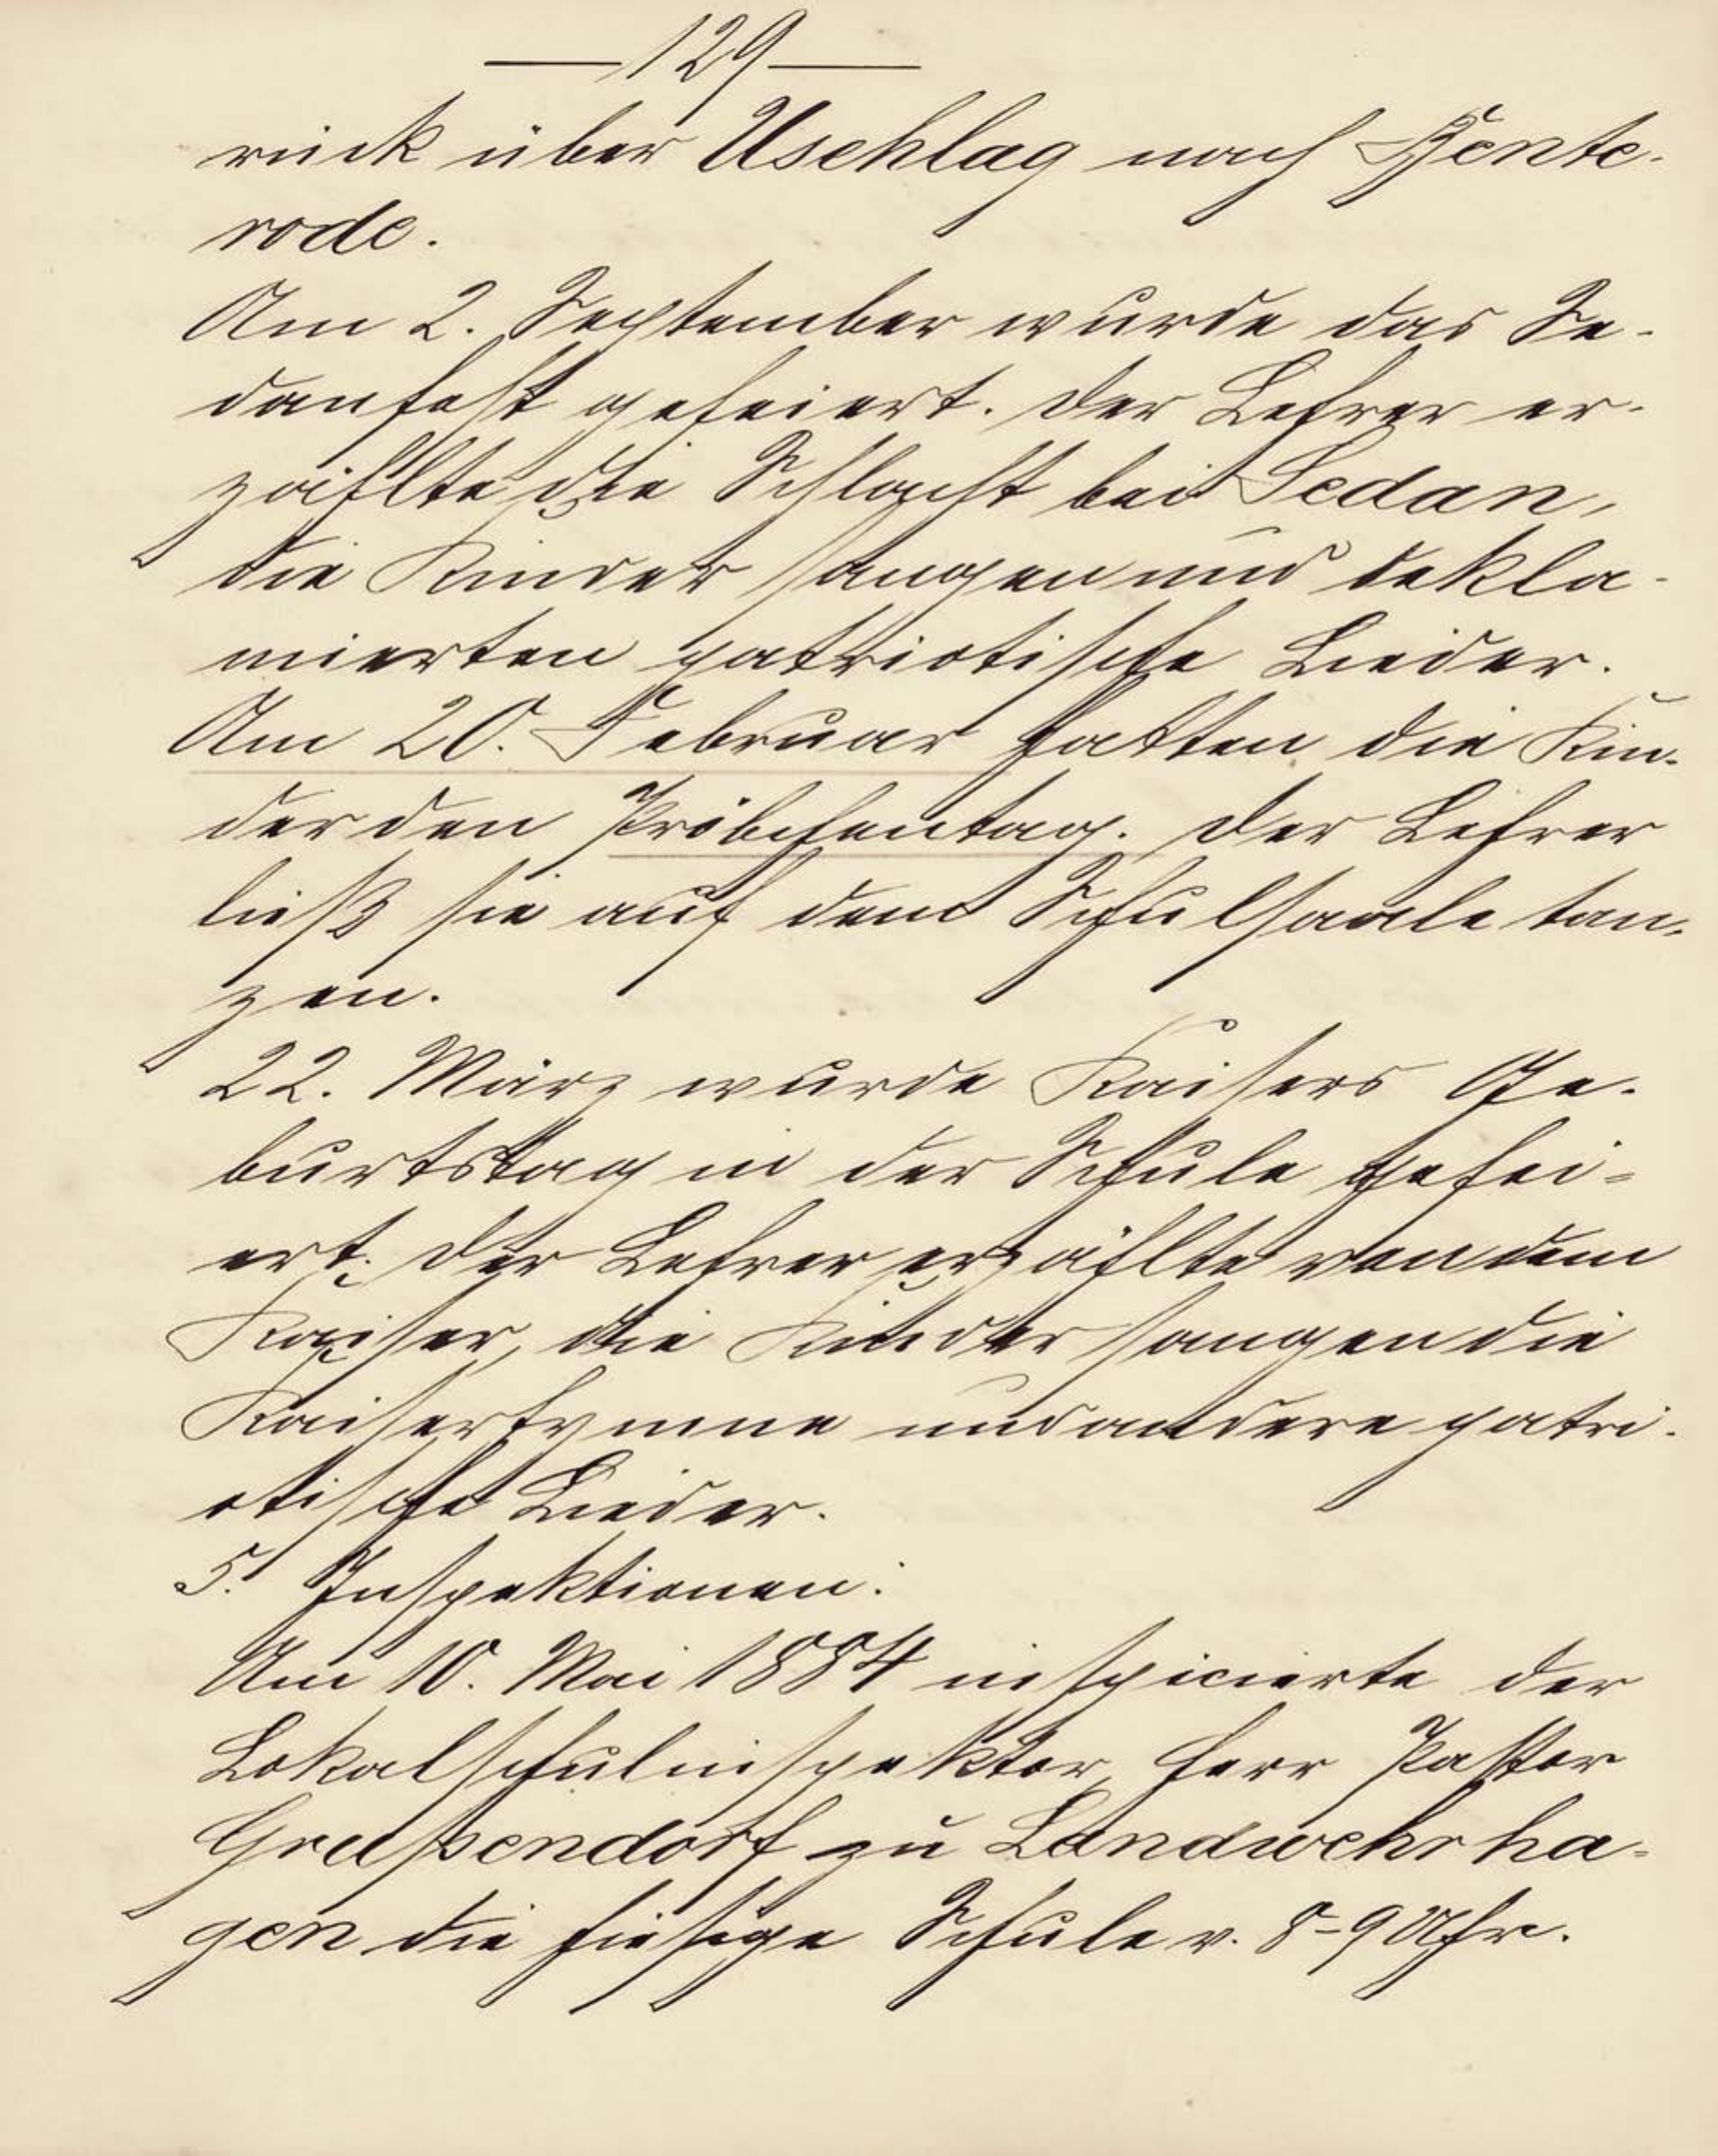 —129—
rück über Uschlag nach Bente-
rode.
Am 2. September wurde das Se-
danfest gefeiert. Der Lehrer er-
zählte die Schlacht bei Sedan,
die Kinder sangen und dekla-
mierten patriotische Lieder.
Am 20. Februar hatten die Kin-
der den Pröbchentag. Der Lehrer
ließ sie auf dem Schulsaale tan-
zen.
22. März wurde Kaisers Ge-
burtstag in der Schule gefei-
ert. Der Lehrer erzählte von dem
Kaiser, die Kinder sangen die
Kaiserhymne und andere patri-
otische Lieder.
5. Inspektionen:
Am 10. Mai 1884 inspicierte der
Lokalschulinspektor, Herr Pastor
Greßendorf zu Landwehrha-
gen die hiesige Schule v. 8-9 Uhr.